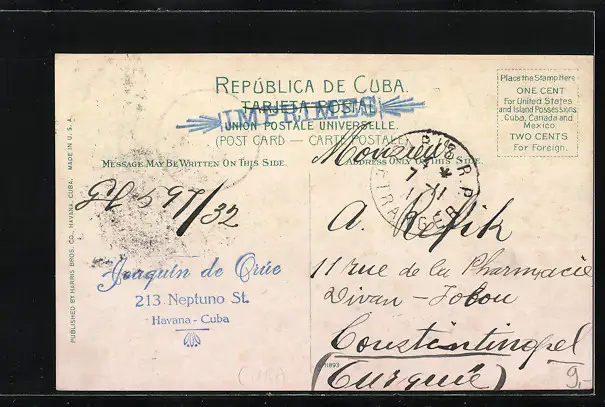 REPÚBLICA DE CUBA.
TARJETA POSTAL
IMPRIMÉS
UNION POSTALE UNIVERSELLE.
(POST CARD — CARTE POSTALE)
MESSAGE MAY BE WRITTEN ON THIS SIDE.
ADDRESS ONLY ON THIS SIDE.
Place the Stamp Here
ONE CENT
For United States
and Island Possessions,
Cuba, Canada and
Mexico.
TWO CENTS
For Foreign.
PUBLISHED BY HARRIS BROS. CO., HAVANA, CUBA. MADE IN U. S. A.
597/32
Joaquin de Crúe
213 Neptuno St.
Havana - Cuba
Monsieur
ETRANGER
A. Refik
11 rue de la Pharmacie
Divan - Jolou
Constantinopel
(Turquie)
11893
CUBA
9,-